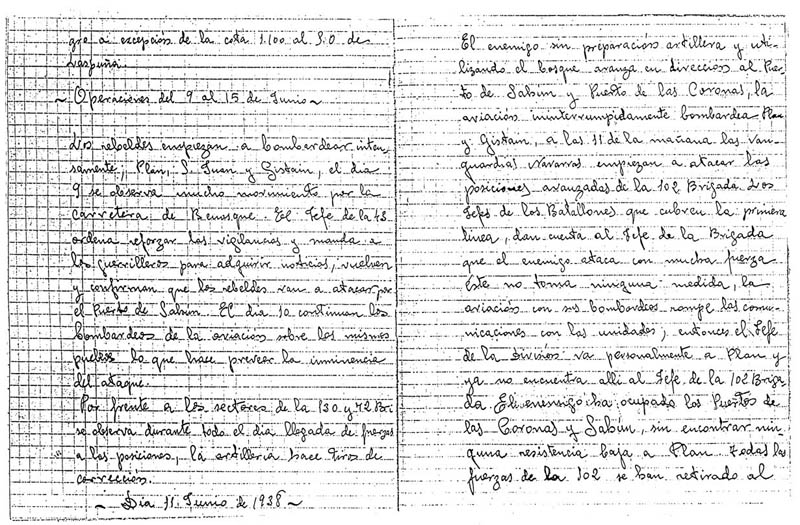 gre a excepción de la cota 1.100 al S.O de
Laspuña.
~ Operaciones del 9 al 15 de Junio ~
Los rebeldes empiezan a bombardear inten-
samente, Plan, S. Juan y Gistain, el dia
9 se observa mucho movimiento por la
carretera de Benasque. El Jefe de la 43
ordena reforzar las vigilancias y manda a
los guerrilleros para adquirir noticias, vuelven
y confirman que los rebeldes van a atacar por
el Puerto de Sabún. El dia 10 continuan los
bombardeos de la aviación sobre los mismos
pueblos lo que hace preveer la inminencia
del ataque.
Por frente a los sectores de la 130 y 72 Bri
se observa durante todo el dia llegada de fuerzas
a las posiciones, la artilleria hace tiros de
corrección.
~ Dia 11 Junio de 1938 ~
El enemigo sin preparación artillera y uti-
lizando el bosque avanza en dirección al Puer
to de Sabún y Puerto de las Coronas, la
aviación ininterrumpidamente bombardea Plan
y Gistain, a las 11 de la mañana las van-
guardias Navarras empiezan a atacar las
posiciones avanzadas de la 102 Brigada. Los
Jefes de los Batallones que cubren la primera
linea, dan cuenta al Jefe de la Brigada
que el enemigo ataca con mucha fuerza
éste no toma ninguna medida, la
aviación con sus bombardeos rompe las comu-
nicaciones con las unidades, entonces el Jefe
de la División va personalmente a Plan y
ya no encuentra alli al Jefe de la 102 Briga
da El enemigo ha ocupado los Puertos de
las Coronas y Sabún, sin encontrar nin-
guna resistencia baja a Plan todas las
fuerzas de la 102 se han retirado al